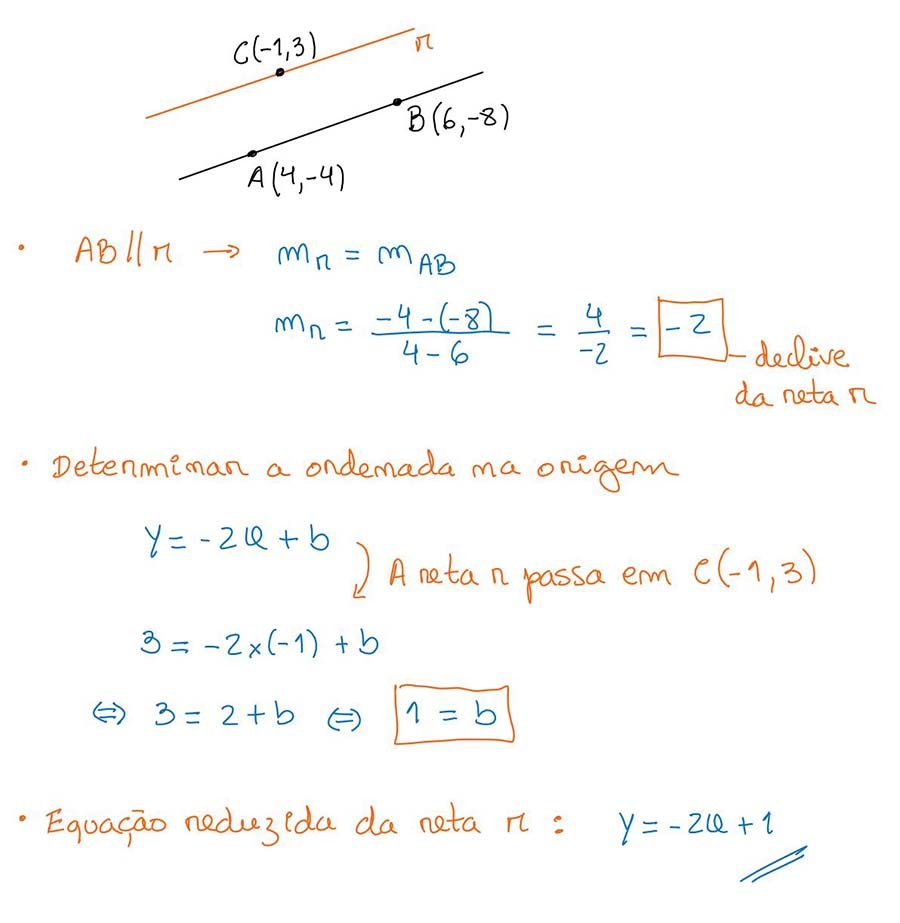 C(-1,3)
r
B(6,-8)
A(4,-4)
• AB//r → mᵣ = m_AB
mᵣ = (-4-(-8))/(4-6) = 4/-2 = -2
declive
da reta r
• Determinar a ordenada na origem
y = -2x + b
A reta r passa em C(-1,3)
3 = -2×(-1) + b
⇔ 3 = 2 + b ⇔ 1 = b
• Equação reduzida da reta r : y = -2x + 1